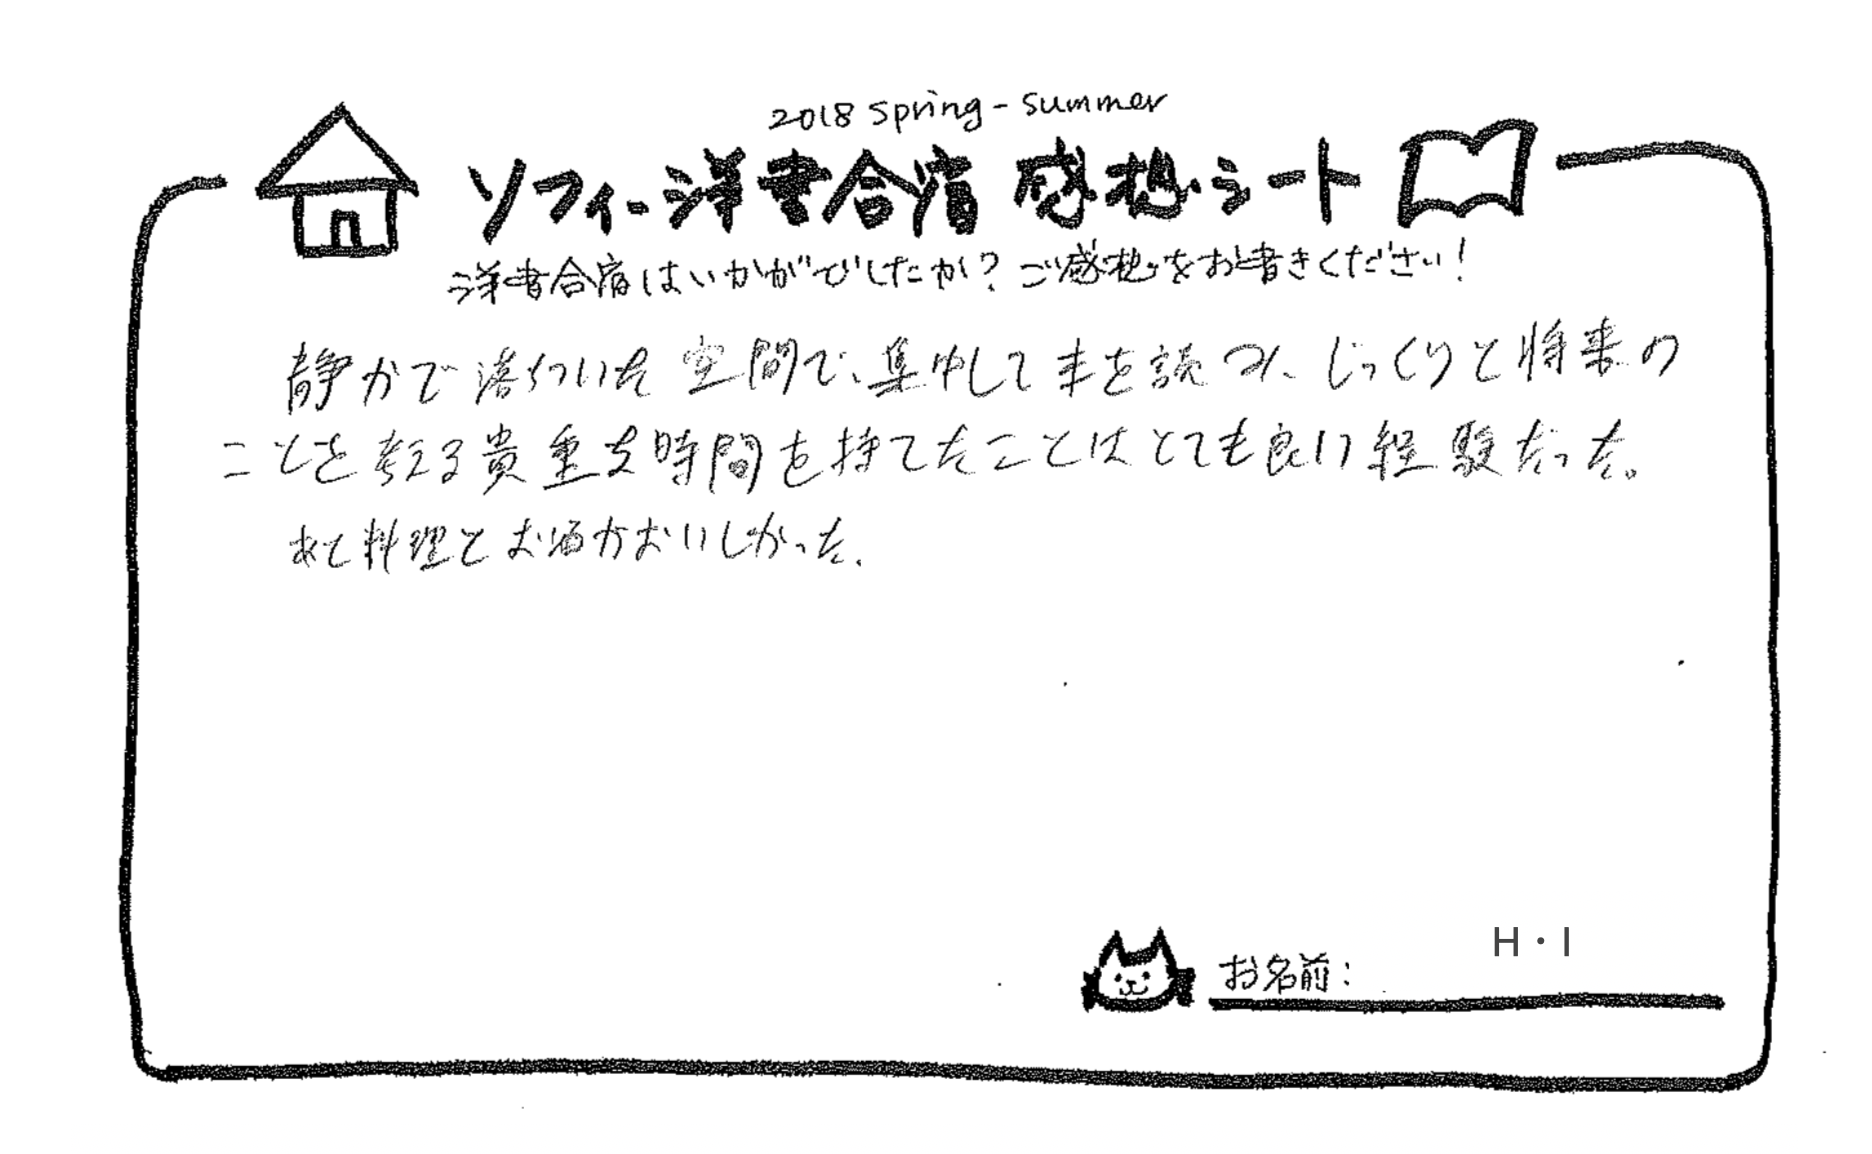 2018 Spring - Summer
ソフィー洋書合宿 感想シート
洋書合宿はいかがでしたか？ご感想をお書きください！
静かで落ちついた空間で、集中して本を読み、じっくりと将来の
ことを考える貴重な時間を持てたことはとても良い経験だった。
あと料理とお酒がおいしかった。
お名前： H・I